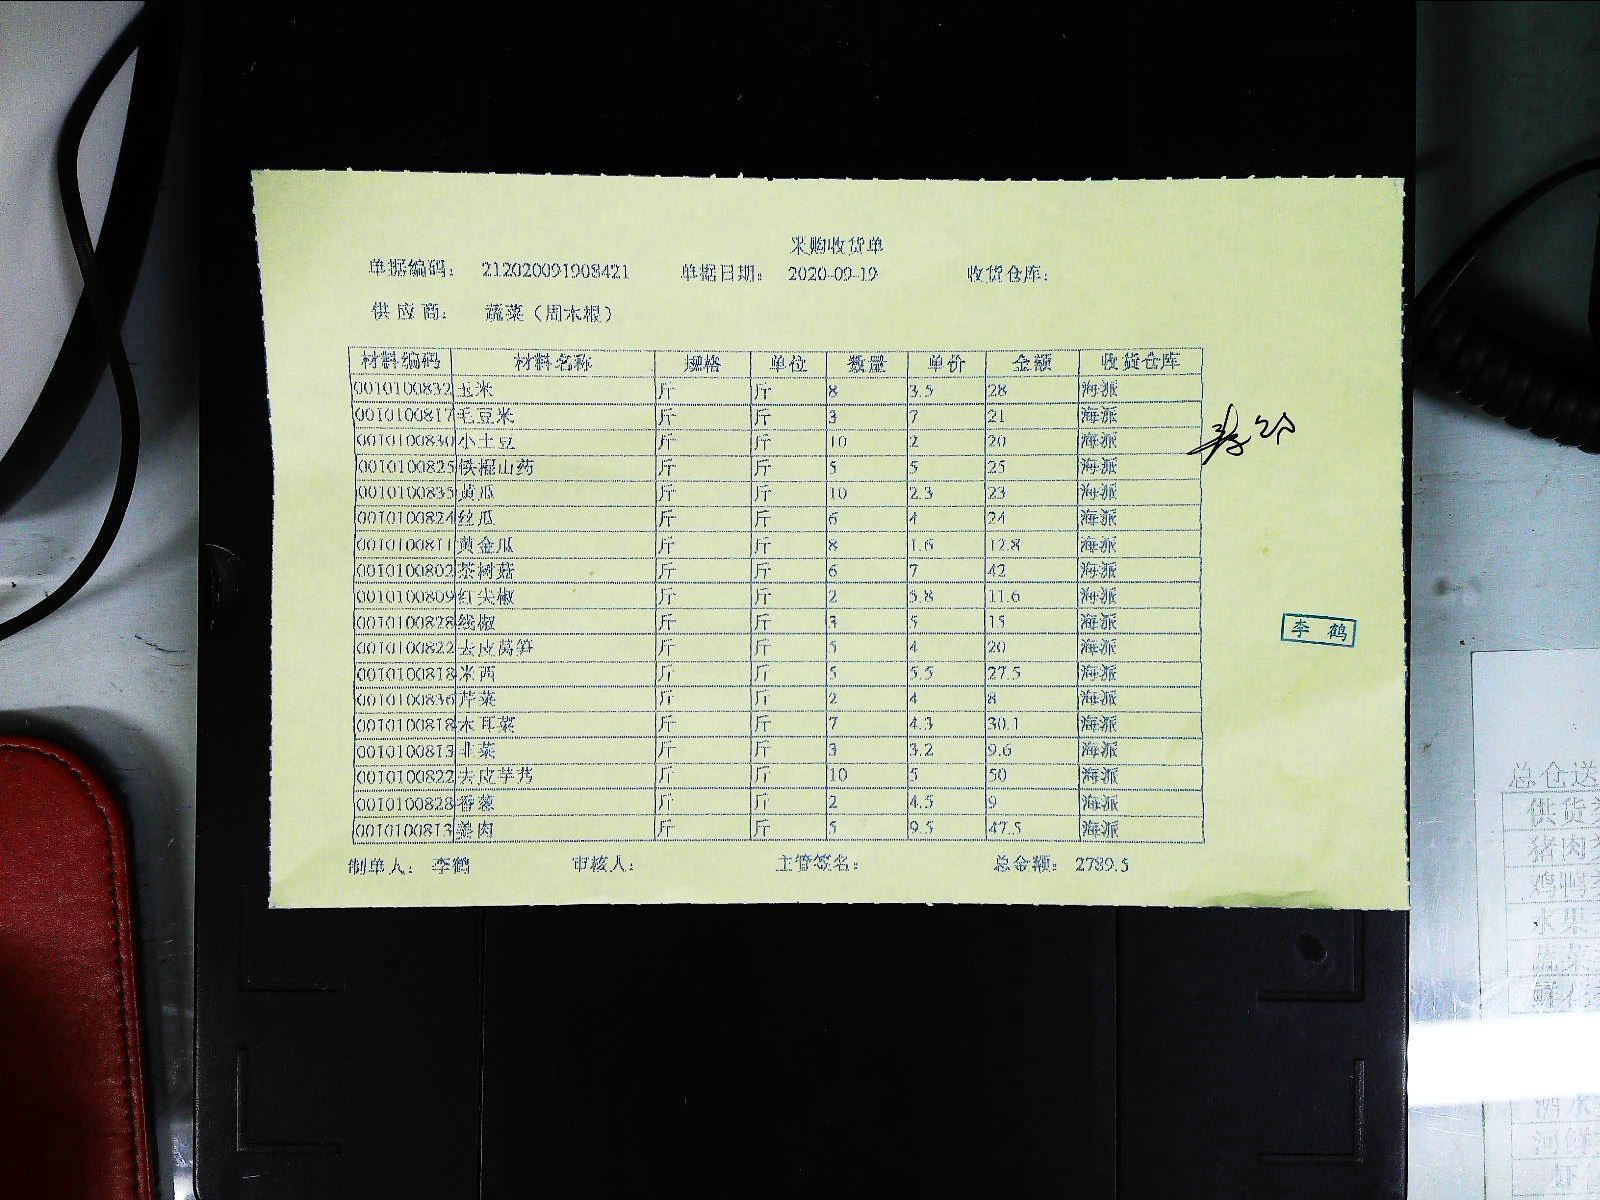 采购收货单
单据编码： 212020091908421 单据日期： 2020-09-19 收货仓库：
供应商： 蔬菜（周木根）
材料编码 材料名称 规格 单位 数量 单价 金额 收货仓库
0010100832 玉米 斤 斤 8 3.5 28 海派
0010100817 毛豆米 斤 斤 3 7 21 海派
0010100830 小土豆 斤 斤 10 2 20 海派
0010100825 铁棍山药 斤 斤 5 5 25 海派
0010100835 黄瓜 斤 斤 10 2.3 23 海派
0010100824 丝瓜 斤 斤 6 4 24 海派
0010100811 黄金瓜 斤 斤 8 1.6 12.8 海派
0010100802 茶树菇 斤 斤 6 7 42 海派
0010100809 红尖椒 斤 斤 2 5.8 11.6 海派
0010100828 线椒 斤 斤 3 5 15 海派
0010100822 去皮莴笋 斤 斤 5 4 20 海派
0010100818 米西 斤 斤 5 5.5 27.5 海派
0010100836 芹菜 斤 斤 2 4 8 海派
0010100818 木耳菜 斤 斤 7 4.3 30.1 海派
0010100813 韭菜 斤 斤 3 3.2 9.6 海派
0010100822 去皮芋艿 斤 斤 10 5 50 海派
0010100828 香葱 斤 斤 2 4.5 9 海派
0010100813 姜肉 斤 斤 5 9.5 47.5 海派
制单人： 李鹤 审核人： 主管签名： 总金额： 2789.5
李鹤
总仓送
供货
猪肉
鸡鸭
水果
蔬菜
鲜花
酒水
河鲜
虾